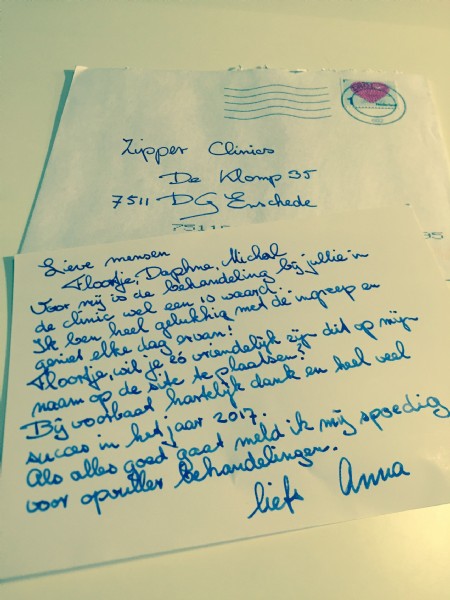 Zipper Clinics
De Klomp 35
7511 DG Enschede
Nederland
Lieve mensen
Floortje, Daphne, Michal
Voor mij is de behandeling bij jullie in
de clinic wel een 10 waard.
Ik ben heel gelukkig met de ingreep en
geniet elke dag ervan!
Floortje, wil je zó vriendelijk zijn dit op mijn
naam op de site te plaatsen?
Bij voorbaat hartelijk dank en heel veel
succes in het jaar 2017.
Als alles goed gaat meld ik mij spoedig
voor opvuller behandelingen.
liefs Anna